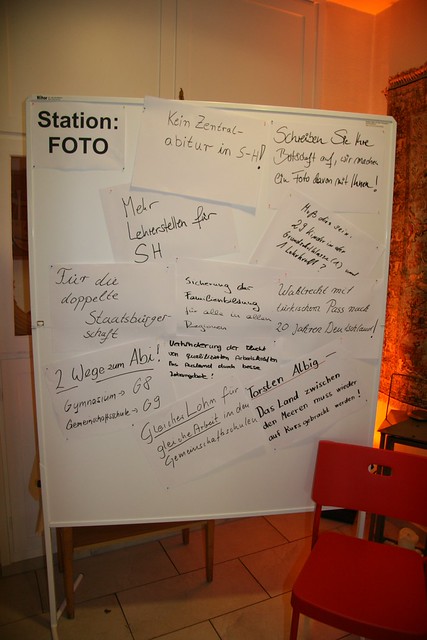 Station:
FOTO
Kein Zentral-
abitur in S-H!
Schreiben Sie Ihre
Botschaft auf, wir machen
ein Foto davon mit Ihnen!
Mehr
Lehrerstellen für
SH
Muß das sein:
29 Kinder in der
Grundschulklasse (1) und
1 Lehrkraft?
Für die
doppelte
Staatsbürger-
schaft
Sicherung der
Familienbildung
für alle in allen
Regionen
Wahlrecht mit
türkischem Pass nach
20 Jahren Deutschland!
Verhinderung der Flucht
von qualifizierten Arbeitskräften
ins Ausland durch bessere
2 Wege zum Abi!
Gymnasium → G8
Gemeinschaftsschule → G9
Gleicher Lohn für
gleiche Arbeit in den
Gemeinschaftsschulen
Torsten Albig -
Das Land zwischen
den Meeren muss wieder
auf Kurs gebracht werden!